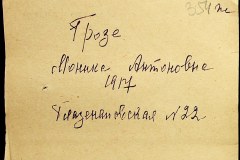 354 ж
Грозе
Монике Антоновне
1917
Глазенаповская N 22